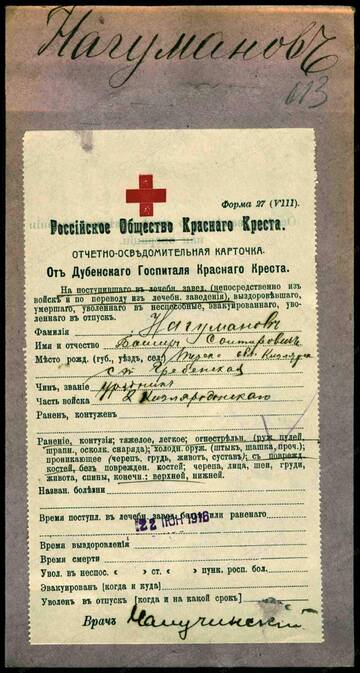 Нагумановъ
613
Форма 27 (VIII).
Россійское Общество Краснаго Креста.
ОТЧЕТНО-ОСВѢДОМИТЕЛЬНАЯ КАРТОЧКА.
Отъ Дубенскаго Госпиталя Краснаго Креста.
На поступившаго въ лечебн. завед. (непосредственно изъ
войскъ и по переводу изъ лечебн. заведенія), выздоровѣвшаго,
умершаго, уволеннаго въ неспособные, эвакуированнаго, уво-
леннаго въ отпускъ.
Фамилія Нагумановъ
Имя и отчество Башир
Мѣсто рожд. (губ., уѣздъ, село) Терск. обл. Кизлярск
ст. Гребенская
Чинъ, званіе Урядникъ
Часть войскъ
Раненъ, контуженъ
Раненіе, контузія; тяжелое, легкое; огнестрѣльн. (руж. пулей,
шрапн., осколк. снаряда); холодн. оруж. (штыкъ, шашка, проч.);
проникающее (черепъ, грудь, животъ, суставъ); съ поврежд.
костей, безъ поврежден. костей; черепа, лица, шеи, груди,
живота, спины, конечн.: верхней, нижней.
Назван. болѣзни
Время поступл. въ лечебн. завед. больного или раненаго
22 ІЮН 1916
Время выздоровленія
Время смерти
Увол. въ неспос. « » ст. « » пунк. росп. бол.
Эвакуированъ [когда и куда]
Уволенъ въ отпускъ [когда и на какой срокъ]
Врачъ